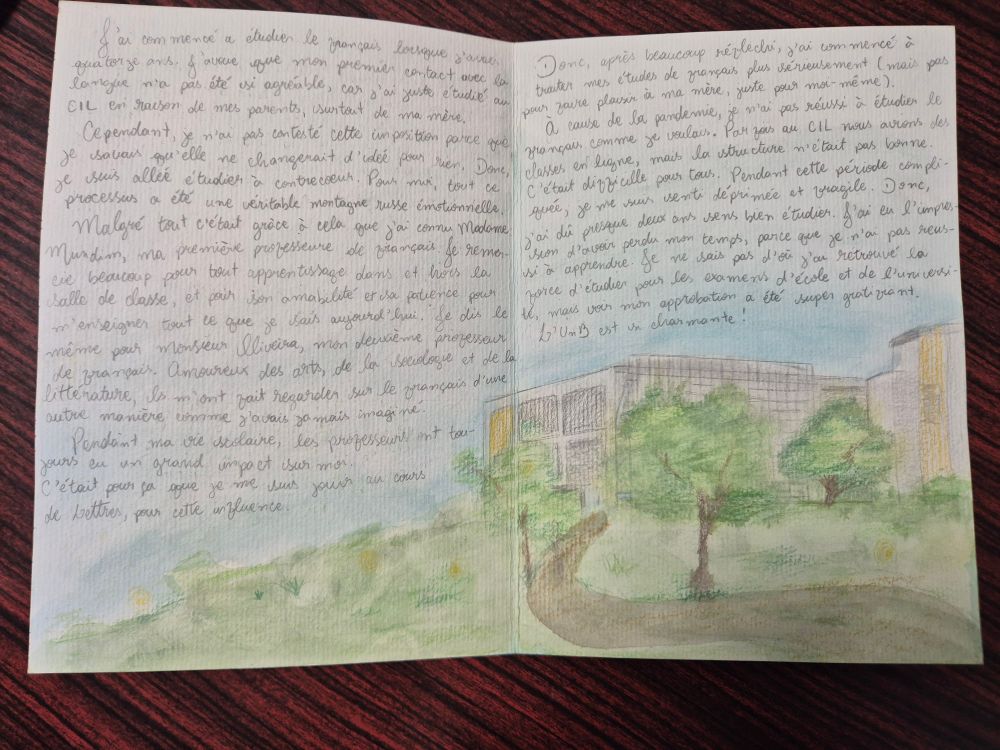 J'ai commencé a étudier le français lorsque j'avais
quatorze ans. J'avoue que mon premier contact avec la
langue n'a pas été si agréable, car j'ai juste étudié au
CIL en raison de mes parents, surtout de ma mère.
Cependant, je n'ai pas contesté cette imposition parce que
je savais qu'elle ne changerait d'ideé pour rien. Donc,
je suis alleé étudier à contrecoeur. Pour moi, tout ce
processus a été une véritable montagne russe émotionnelle.
Malgré tout c'était grâce à cela que j'ai connu Madame
Mundim, ma première professeure de français. Je remer-
cie beaucoup pour tout apprentissage dans et hors la
salle de classe, et pour son amabilité et sa patience pour
m'enseigner tout ce que je sais aujourd'hui. Je dis le
même pour Monsieur Oliveira, mon deuxième professeur
de français. Amoureux des arts, de la sociologie et de la
littérature, ils m'ont fait regarder sur le français d'une
autre manière comme j'avais jamais imaginé.
Pendant ma vie scolaire, les professeurs ont tou-
jours eu un grand impact sur moi.
C'était pour ça que je me suis au cours
de Lettres, pour cette influence.
Donc, après beaucoup réflechi, j'ai commencé à
traiter mes études de français plus sérieusement (mais pas
pour faire plaisir à ma mère, juste pour moi-même).
À cause de la pandemie, je n'ai pas réussi à étudier le
français comme je voulais. Par fois au CIL nous avions des
classes en ligne, mais la structure n'était pas bonne.
C'était difficulle pour tous. Pendant cette période compli-
queé, je me suis senti déprimée et fragile. Donc,
j'ai dû presque deux ans sens bien étudier. J'ai eu l'impres-
sion d'avoir perdu mon temps, parce que je n'ai pas reus-
si à apprendre. Je ne sais pas d'où j'ai rétrouvé la
force d'étudier pour les examens d'école et de l'universi-
té, mais voir mon approbation a été super gratifiant.
L'UnB est un charmante !